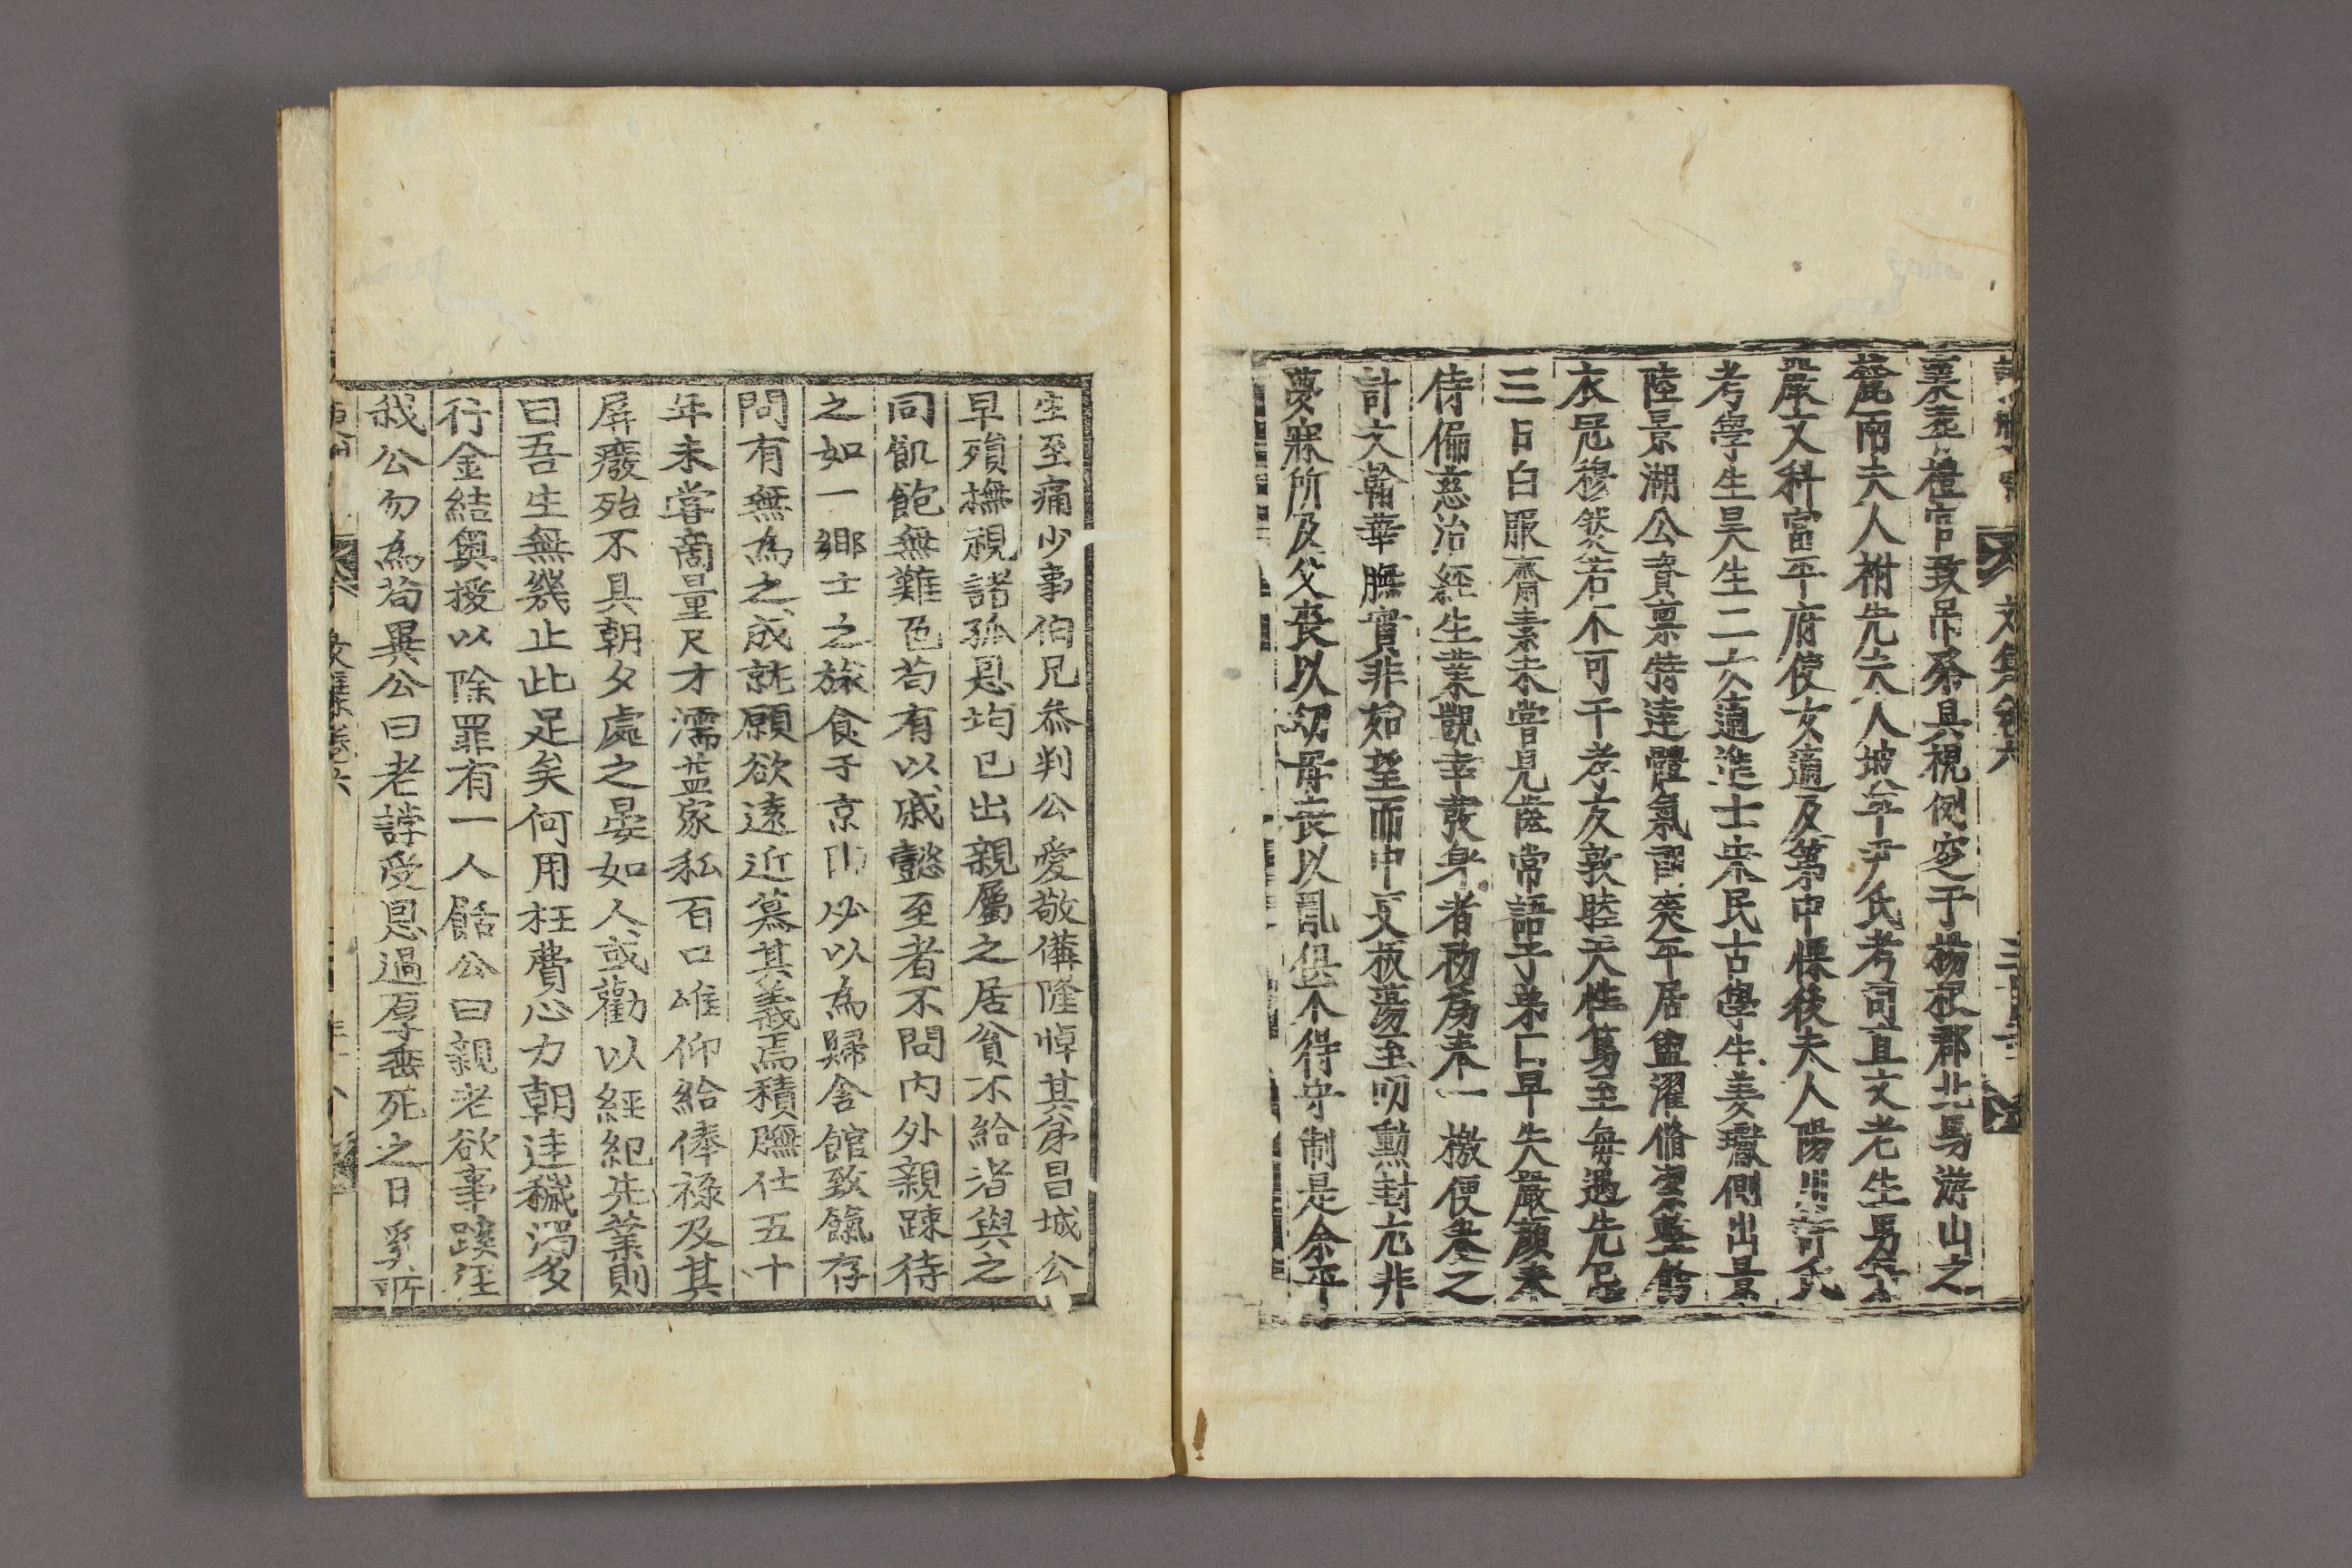 文集卷六
稟臺禮官致吊祭具視例窆于楊根郡北馬游山之
麓兩夫人祔先夫人坡平尹氏考司直文老生男
嚴文科富平府使女適及第申慄後夫人陽川許氏
考學生昊生二女適進士宋民古學生姜瓛側出景
陸景湖公資禀特達體氣間爽平居盥濯脩潔整飭
衣冠穆然若不可干孝友敦睦天性篤至每遇先忌
三日白服齋素未嘗見齒常語子弟曰早失嚴顔奉
侍偏慈治經生業覬幸發身者初爲奉一檄便養之
計文翰華膴實非始望而中更板蕩至叨勳封尤非
夢寐所及父喪以幼母喪以亂俱不得守制是余平
生至痛少事伯兄叅判公愛敬備隆悼其弟昌城公
早殞撫視諸孤恩均己出親屬之居貧不給者與之
同飢飽無難色苟有以戚懿至者不問內外親踈待
之如一鄉士之旅食于京師必以為歸舍館致餼存
問有無為之成就願欲遠近慕其義焉積膴仕五十
年未嘗商量尺寸濡益家私百口唯仰給俸祿及其
屏癈殆不具朝夕處之晏如人或勸以經紀先業則
曰吾生無幾止此足矣何用枉費心力朝廷穢濁多
行金結奧援以除罪有一人餂公曰親老欲事蹊徑
我公勿為苟異公曰老誖受恩過厚垂死之日奚所
文集卷六